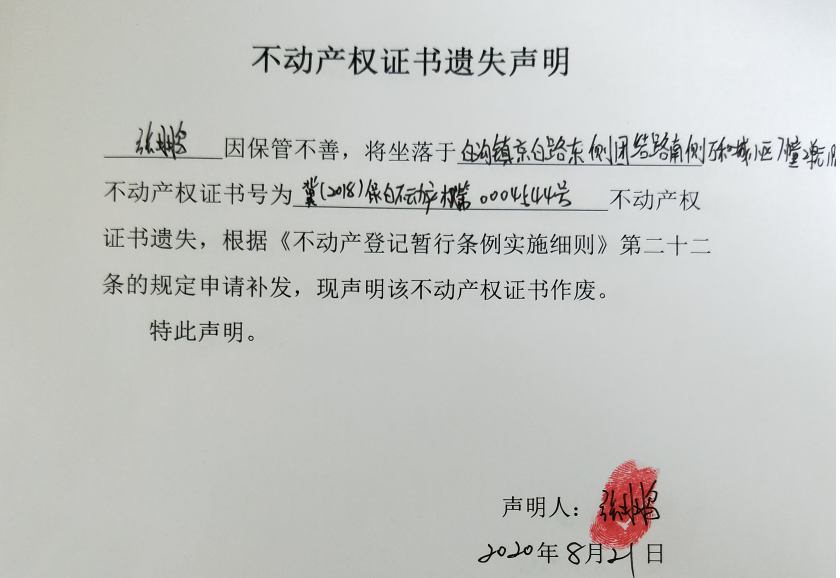 不动产权证书遗失声明
张鹏 因保管不善，将坐落于 白沟镇京白路东侧团结路南侧万和城小区7幢2单元
不动产权证书号为 冀(2018)保白不动产权第0004544号 不动产权
证书遗失，根据《不动产登记暂行条例实施细则》第二十二
条的规定申请补发，现声明该不动产权证书作废。
特此声明。
声明人：张鹏
2020年8月21日